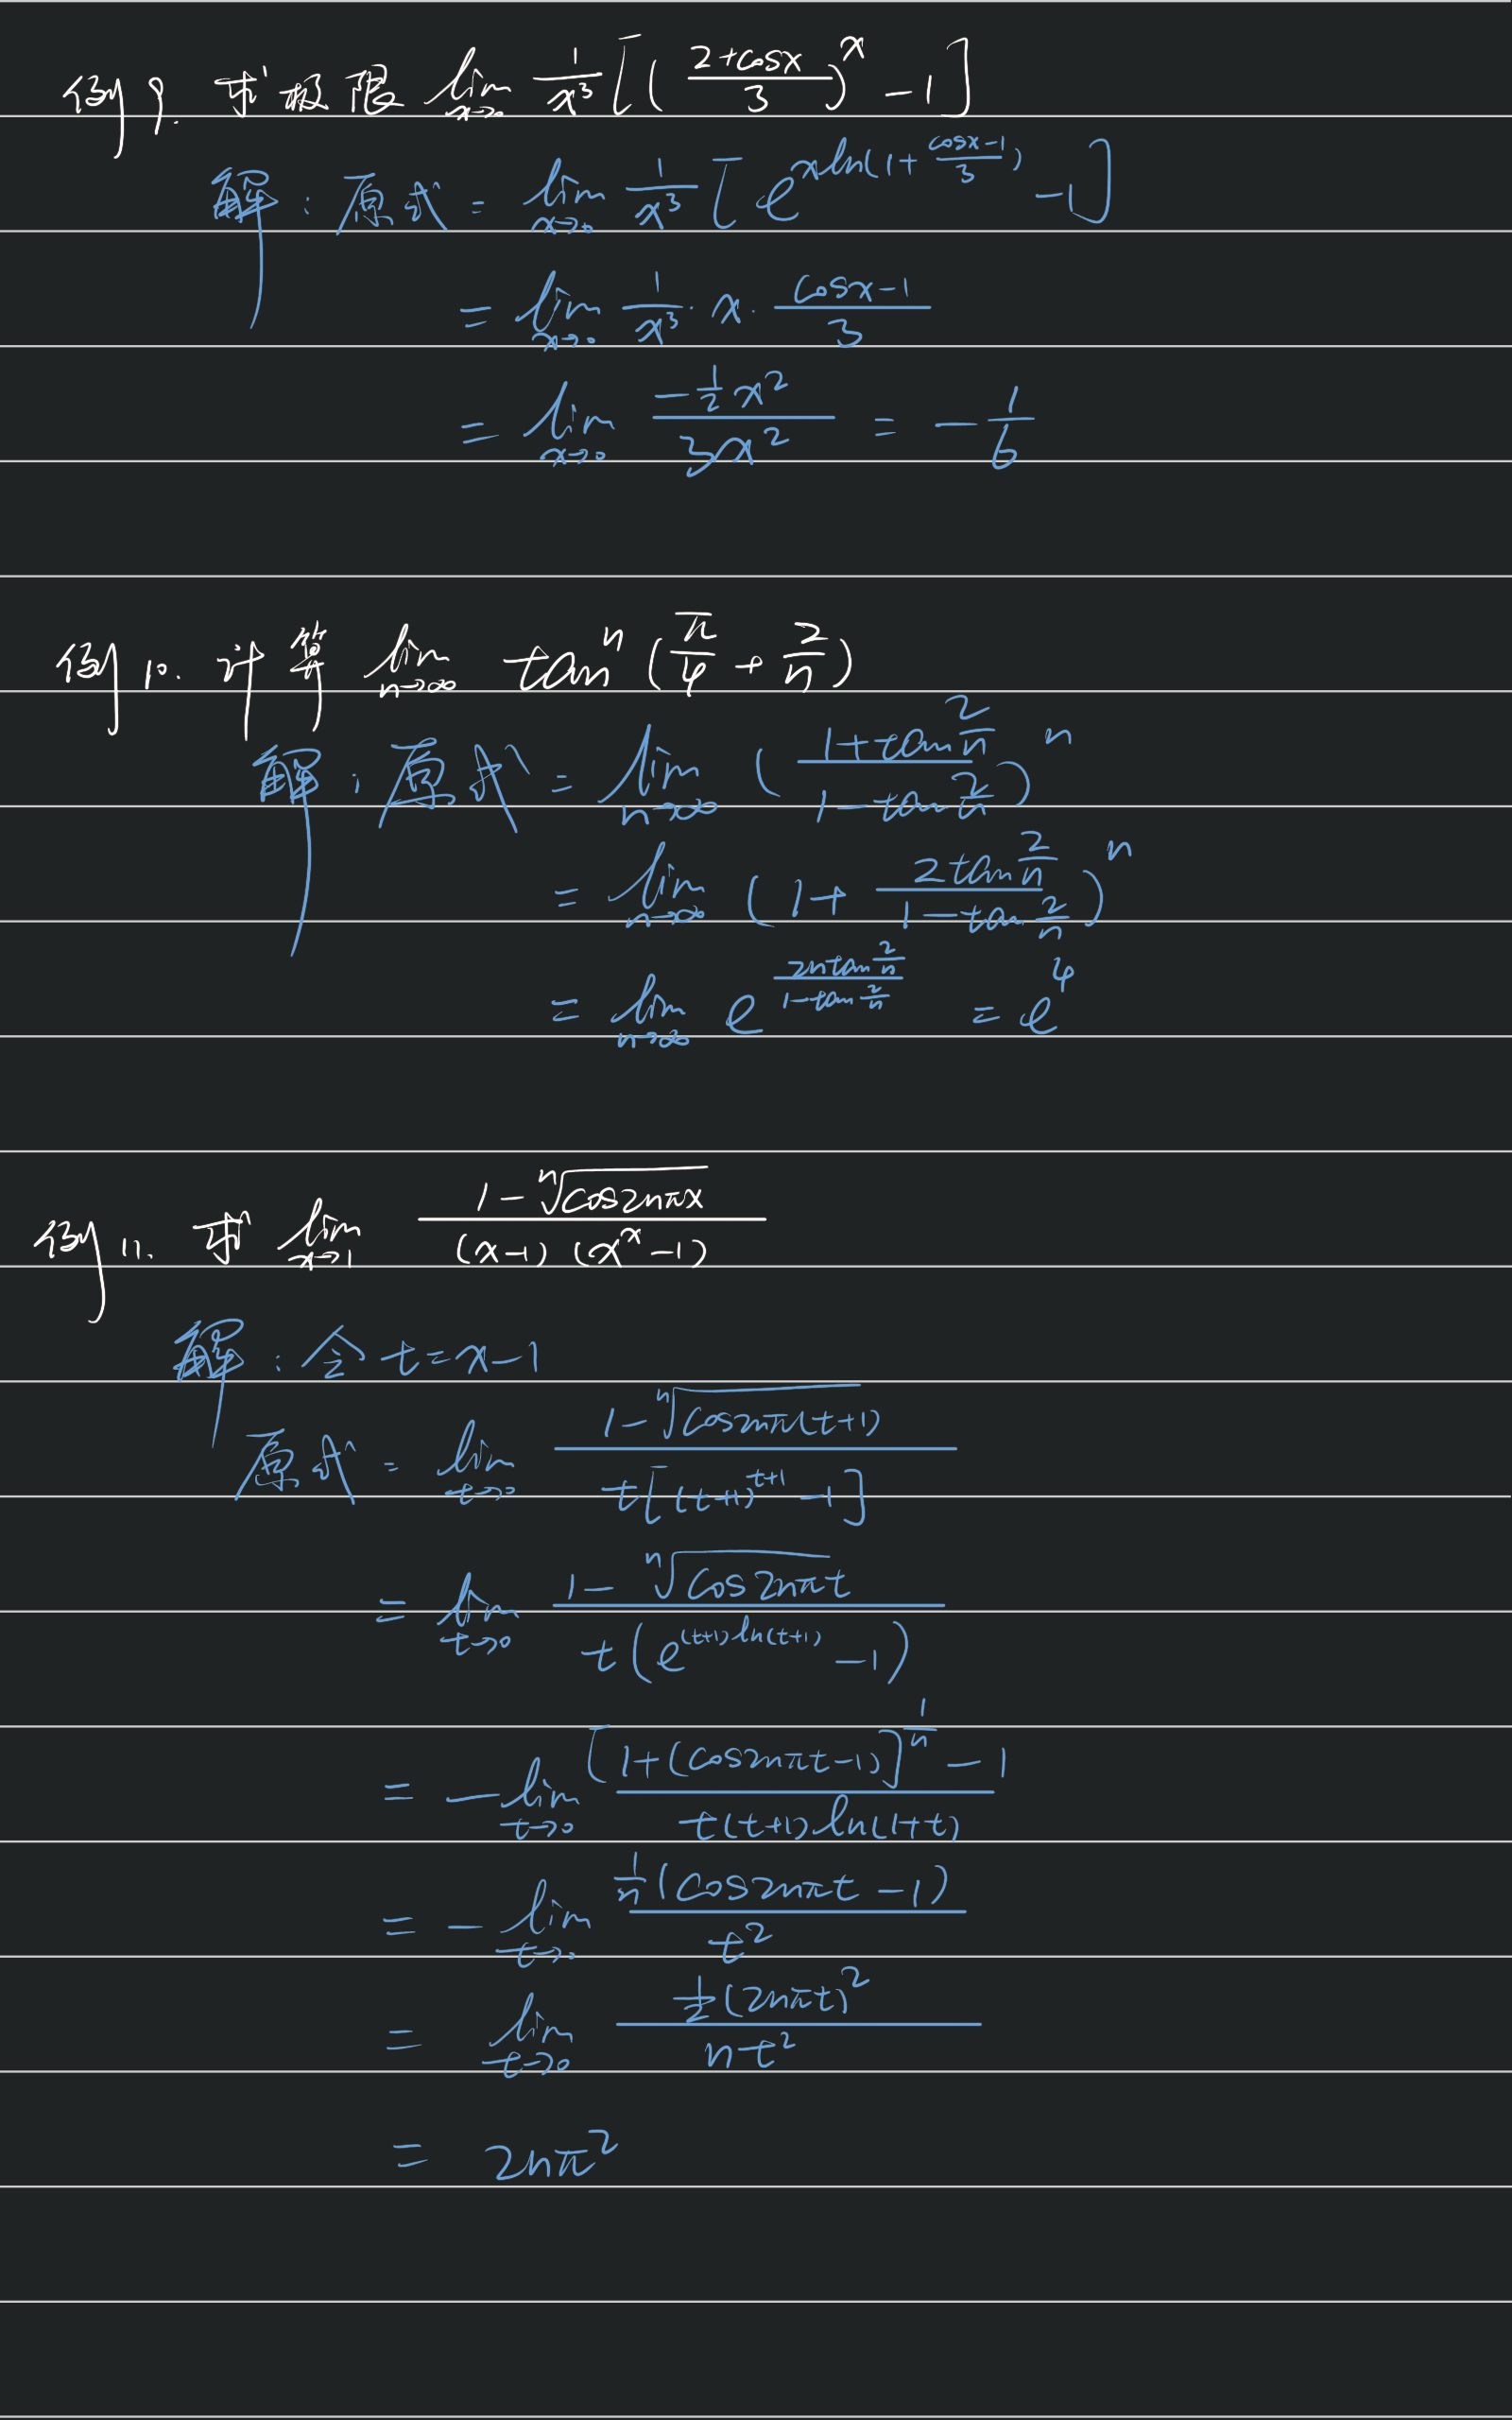 例9. 求极限 lim_{x→0} \frac{1}{x^3}[(\frac{2+cosx}{3})^x - 1]
解: 原式 = lim_{x→0} \frac{1}{x^3}[e^{xln(1+\frac{cosx-1}{3})} - 1]
= lim_{x→0} \frac{1}{x^3}·x·\frac{cosx-1}{3}
= lim_{x→0} \frac{-\frac{1}{2}x^2}{3x^2} = -\frac{1}{6}
例10. 计算 lim_{n→∞} tan^n(\frac{π}{4}+\frac{2}{n})
解: 原式 = lim_{n→∞} (\frac{1+tan\frac{2}{n}}{1-tan\frac{2}{n}})^n
= lim_{n→∞} (1+\frac{2tan\frac{2}{n}}{1-tan\frac{2}{n}})^n
= lim_{n→∞} e^{\frac{2ntan\frac{2}{n}}{1-tan\frac{2}{n}}} = e^4
例11. 求 lim_{x→1} \frac{1-\sqrt[n]{cos2nπx}}{(x-1)(x^x-1)}
解: 令 t=x-1
原式 = lim_{t→0} \frac{1-\sqrt[n]{cos2nπ(t+1)}}{t[(t+1)^{t+1}-1]}
= lim_{t→0} \frac{1-\sqrt[n]{cos2nπt}}{t(e^{(t+1)ln(t+1)}-1)}
= -lim_{t→0} \frac{[1+(cos2nπt-1)]^{\frac{1}{n}}-1}{t(t+1)ln(1+t)}
= -lim_{t→0} \frac{\frac{1}{n}(cos2nπt-1)}{t^2}
= lim_{t→0} \frac{\frac{1}{2}(2nπt)^2}{nt^2}
= 2nπ^2